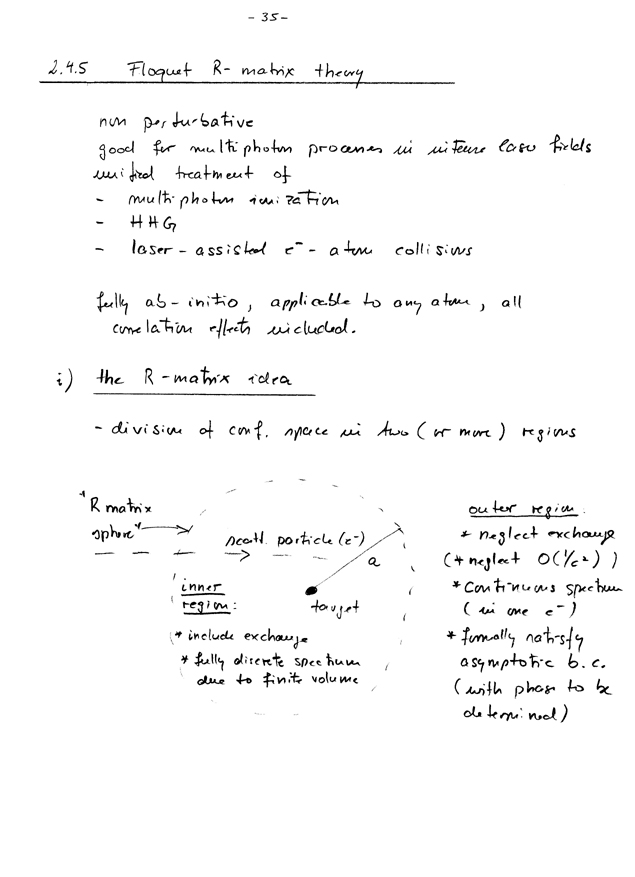 - 35 -
2.4.5 Floquet R-matrix theory
non perturbative
good for multiphoton processes in intense laser fields
unified treatment of
- multiphoton ionization
- HHG
- laser-assisted e⁻-atom collisions
fully ab-initio, applicable to any atom, all
correlation effects included.
i) the R-matrix idea
- division of conf. space in two (or more) regions
"R matrix
sphere"
scatt. particle (e⁻)
a
target
inner
region:
* include exchange
* fully discrete spectrum
due to finite volume
outer region:
* neglect exchange
(* neglect O(1/c²))
* continuous spectrum
(in one e⁻)
* formally satisfy
asymptotic b.c.
(with phase to be
determined)